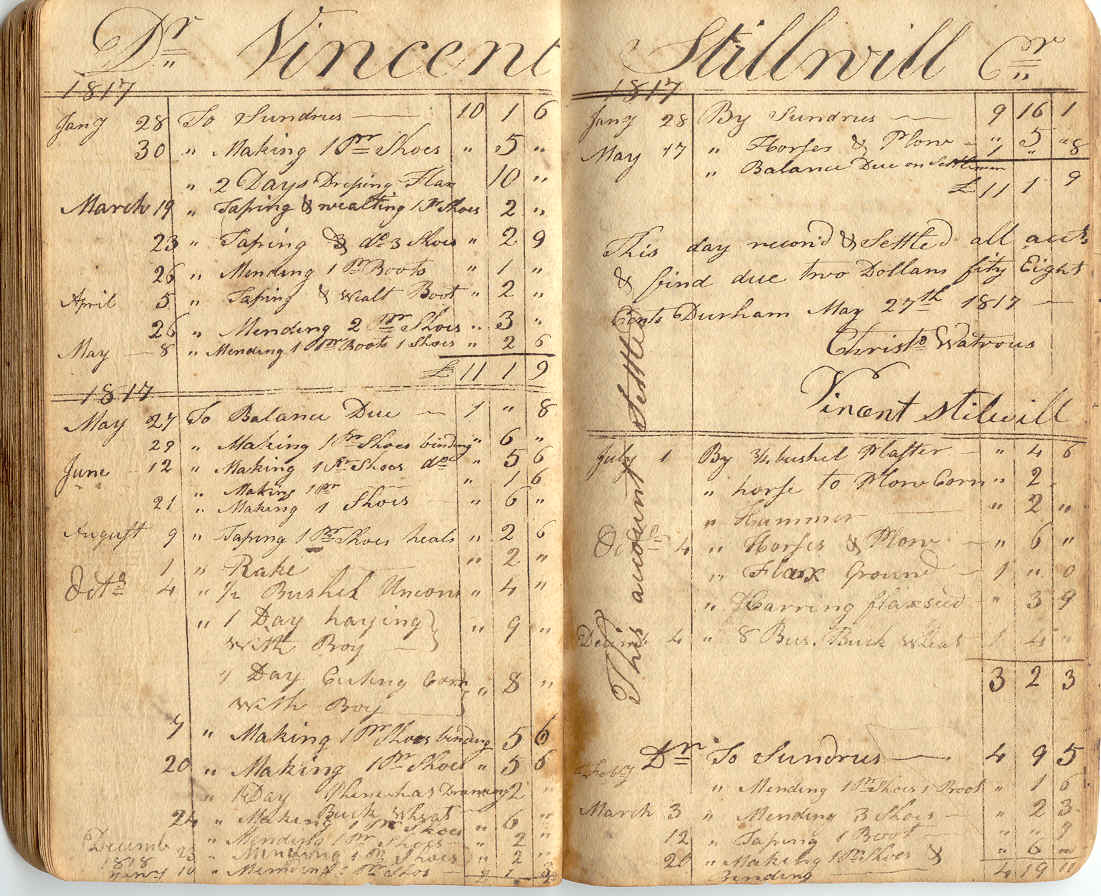 Dr Vincent
1817
Jany 28 To Sundries 10 1 6
30 " Making 1 Pr Shoes " 5 "
" 2 Days Dressing Flax 10 "
March 19 " Taping & wealting 1 Pr Shoes 2 "
23 " Taping & do 3 Shoes " 2 9
26 " Mending 1 Pr Boots " 1 "
April 5 " Taping & Wealt Boot " 2 "
26 " Mending 2 Pr Shoes " 3 "
May 8 " Mending 1 Pr Boots 1 Shoes " 2 6
£ 11 1 9
1817
May 27 To Balance Due 1 " 8
29 " Making 1 Pr Shoes binding " 6 "
June 12 " Making 1 Pr Shoes do " 5 6
" Making 1 Pr " 1 6
21 " Making 1 Shoes " 6 "
August 9 " Taping 1 Pr Shoes heals " 2 6
1 " Rake " 2 "
Octo 4 " 1/2 Bushel " 4 "
" 1 Day haying
With Boy " 9 "
" 1 Day Cuting Corn
With Boy " 8 "
9 " Making 1 Pr Shoes binding 5 6
20 " Making 1 Pr Shoes " 5 6
" 1 Day 2 "
Buck Wheat
24 " Making 1 Pr Shoes " 6 "
Decemb " Mending 1 Pr Shoes " 2 "
23 " Mending 1 Pr Shoes " 2 "
1818
10 " Mending 1 Pr Shoes
Stillwill Cr
1817
Jany 28 By Sundries 9 16 1
May 17 " Horses & Plow " 5 "
" Balance Due on Settlemen 1 " 8
£ 11 1 9
This day recond & Settled all acts
& find due two Dollars fifty Eight
Cents Durham May 27th 1817
Christo Watrous
Vincent Stilwill
This account Settled
July 1 By 3/4 bushel Plaster " 4 6
" horse to Plow Corn " 2 "
" Hammer " 2 "
Octo 4 " Horses & Plow " 6 "
" Flax Ground 1 " 0
" Harring flaxseed " 3 9
Decem 4 " 8 Bus. Buck Wheat 1 4 "
3 2 3
Feby Dr To Sundries 4 9 5
" Mending 1 Pr Shoes 1 Boot " 1 6
March 3 " Mending 3 Shoes " 2 3
12 " Taping 1 Boot " " 9
20 " Making 1 Pr Shoes & " 6 "
Binding 4 19 11